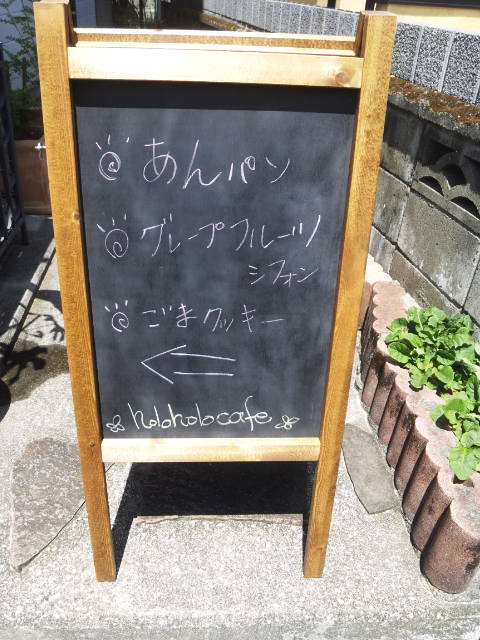 あんパン
グレープフルーツ
シフォン
ごまクッキー
holoholocafe